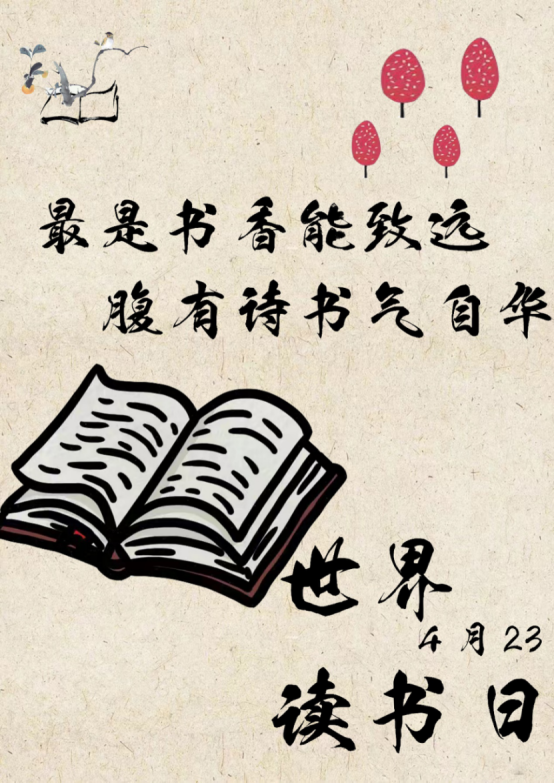 最是书香能致远
腹有诗书气自华
世界
4月23
读书日